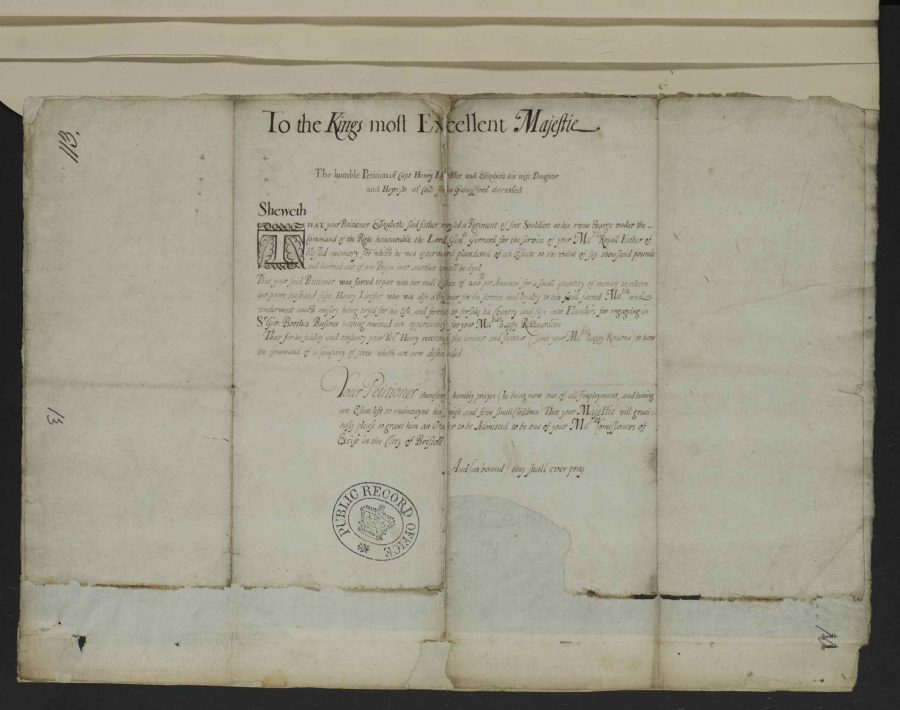 113.
To the Kings most Excellent Majestie
The humble Petition of Capt Henry and Elizabeth his wife Daughter
and of Coll: deceased
Sheweth
THAT your Petitioner Elizabeths said father a Regiment of foot Souldiers at his owne charge under the
Command of the Right honourable the Lord Gen:ll Gerrard for the service of your Ma:ties Royall Father of
blessed memory, for which he was afterward plundered of an Estate to the value of six thousand pounds
and turned out of one Prison into another untill he dyed
That your said Petitioner was forced to part with her reall Estate of p Annum for a small quantity of money to releive
her poore husband Capt Henry who was also a Prisoner for his service and loyalty to his said sacred Ma:tie and
underwent much misery being tryed for his life, and forced to forsake his Country and flye into Flanders for engaging in
Sr Geo: Boothes Busines haveing noe opportunity for your Ma:ties happy Restauration
That for his fidelity and constancy your Pet:r Henry the honour and favour since your Ma:ties happy Returne to have
the command of a company of foote which are now disbanded
Your Petitioner therefore humbly prayes (he being now out of all Employment, and having
not Estate left to maintayne his wife and five small Children) That your Majestie will graci-
ously please to grant him an Order to be Admitted to be one of your Ma:ties Comissioners of
Excise in the City of Bristoll
And (as bound) they shall ever pray
PUBLIC RECORD OFFICE
13